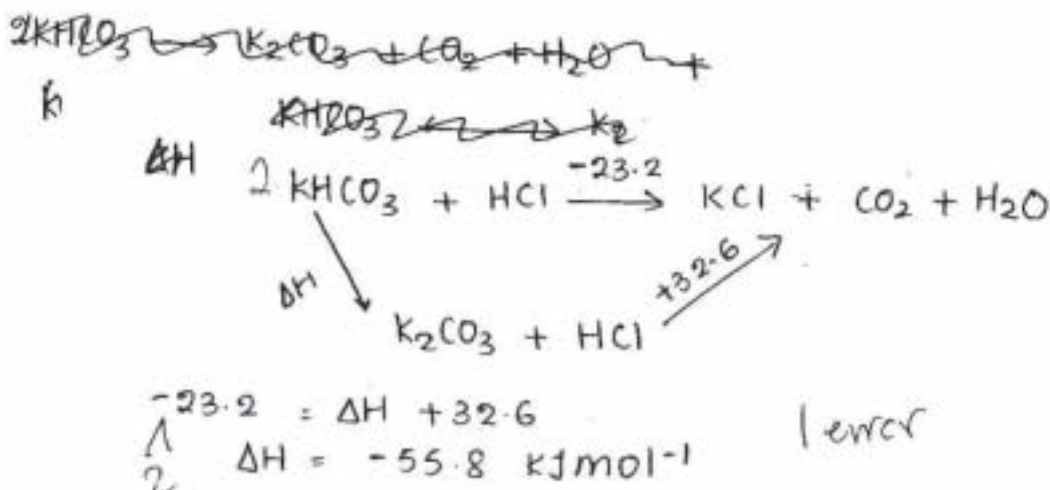 2KHCO₃ → K₂CO₃ + CO₂ + H₂O +
K
KHCO₃ → K₂
ΔH
-23.2
2 KHCO₃ + HCl → KCl + CO₂ + H₂O
ΔH
+32.6
K₂CO₃ + HCl
-23.2 = ΔH +32.6
2
ΔH = -55.8 kJmol⁻¹
1 error